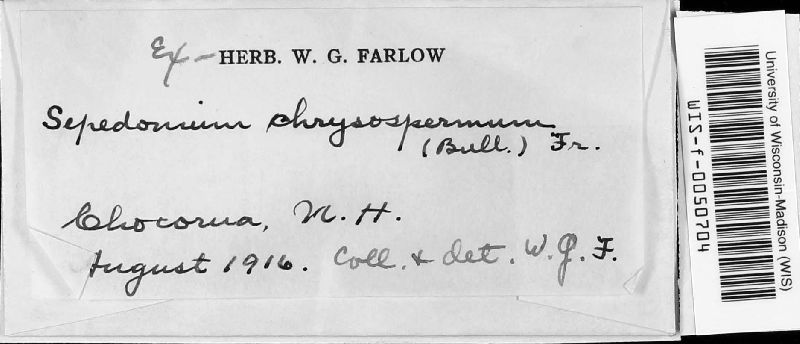 Ex - HERB. W. G. FARLOW
Sepedonium chrysospermum
(Bull.) Fr.
Chocorua, N. H.
August 1916. Coll. & det. W. G. F.
University of Wisconsin-Madison (WIS)
WIS-f-0050704